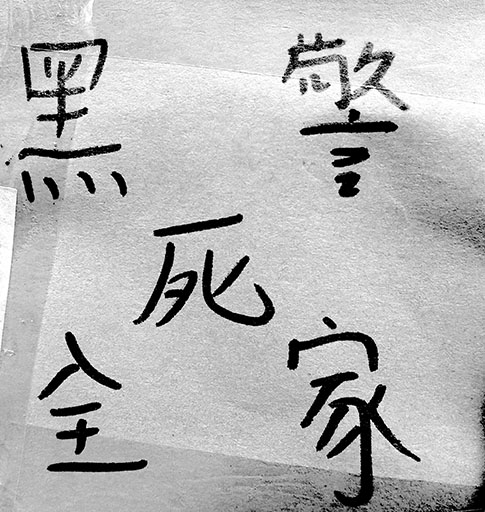 黑警
死
全家